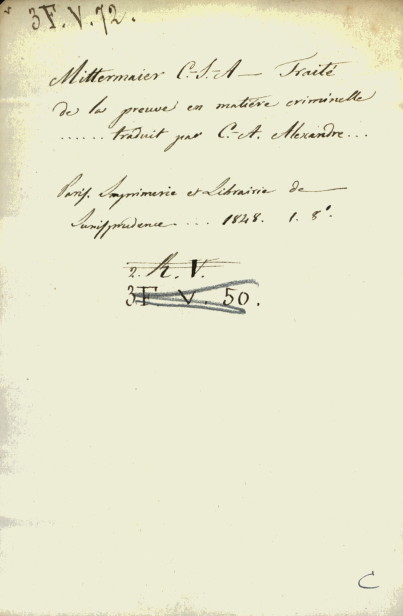 3F.V.72.
Mittermaier C.-S.-A — Traité
de la preuve en matière criminelle
...... traduit par C.-A. Alexandre...
Paris. Imprimerie et Librairie de
Jurisprudence ... 1848. 1. 8°.
2. R. V.
3F. V. 50.
C